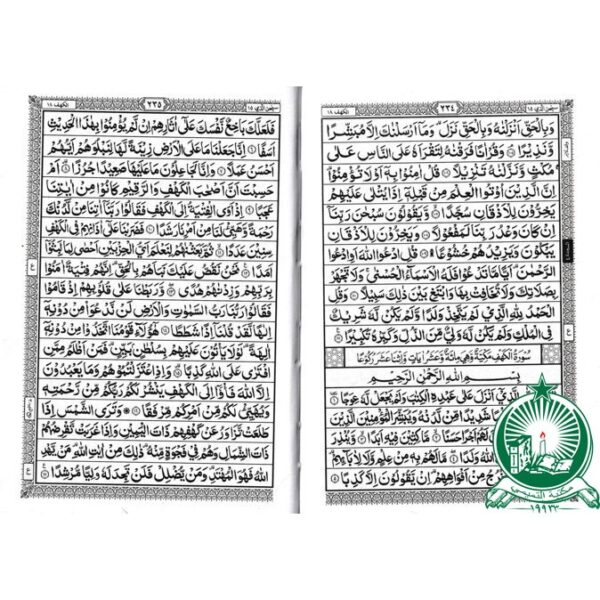 سبحن الذي ١٥ ٢٣٤ الكهف ١٨
وَبِالْحَقِّ اَنْزَلْنٰهُ وَبِالْحَقِّ نَزَلَ ؕ وَمَاۤ اَرْسَلْنٰكَ اِلَّا مُبَشِّرًا
وَّنَذِيْرًا ۘ۝ وَقُرْاٰنًا فَرَقْنٰهُ لِتَقْرَاَهٗ عَلَى النَّاسِ عَلٰى
مُكْثٍ وَّنَزَّلْنٰهُ تَنْزِيْلًا ۝ قُلْ اٰمِنُوْا بِهٖۤ اَوْ لَا تُؤْمِنُوْا ؕ
اِنَّ الَّذِيْنَ اُوْتُوا الْعِلْمَ مِنْ قَبْلِهٖۤ اِذَا يُتْلٰى عَلَيْهِمْ
يَخِرُّوْنَ لِلْاَذْقَانِ سُجَّدًا ۝ وَّيَقُوْلُوْنَ سُبْحٰنَ رَبِّنَاۤ
اِنْ كَانَ وَعْدُ رَبِّنَا لَمَفْعُوْلًا ۝ وَيَخِرُّوْنَ لِلْاَذْقَانِ
يَبْكُوْنَ وَيَزِيْدُهُمْ خُشُوْعًا ۝ قُلِ ادْعُوا اللّٰهَ اَوِ ادْعُوا
الرَّحْمٰنَ ؕ اَيًّا مَّا تَدْعُوْا فَلَهُ الْاَسْمَآءُ الْحُسْنٰى ۚ وَلَا تَجْهَرْ
بِصَلَاتِكَ وَلَا تُخَافِتْ بِهَا وَابْتَغِ بَيْنَ ذٰلِكَ سَبِيْلًا ۝ وَقُلِ
الْحَمْدُ لِلّٰهِ الَّذِيْ لَمْ يَتَّخِذْ وَلَدًا وَّلَمْ يَكُنْ لَّهٗ شَرِيْكٌ
فِي الْمُلْكِ وَلَمْ يَكُنْ لَّهٗ وَلِيٌّ مِّنَ الذُّلِّ وَكَبِّرْهُ تَكْبِيْرًا ۝
سُوْرَةُ الْكَهْفِ مَكِّيَّةٌ وَّهِيَ مِائَةٌ وَّعَشْرُ اٰيَاتٍ وَّاثْنَا عَشَرَ رُكُوْعًا
بِسْمِ اللّٰهِ الرَّحْمٰنِ الرَّحِيْمِ
الَّذِيْۤ اَنْزَلَ عَلٰى عَبْدِهِ الْكِتٰبَ وَلَمْ يَجْعَلْ لَّهٗ عِوَجًا ۝
شَدِيْدًا مِّنْ لَّدُنْهُ وَيُبَشِّرَ الْمُؤْمِنِيْنَ الَّذِيْنَ
اَجْرًا حَسَنًا ۝ مَّاكِثِيْنَ فِيْهِ اَبَدًا ۝ وَّيُنْذِرَ
اللّٰهُ وَلَدًا ۝ مَا لَهُمْ بِهٖ مِنْ عِلْمٍ وَّلَا لِاٰبَآئِهِمْ ؕ
مِنْ اَفْوَاهِهِمْ ؕ اِنْ يَّقُوْلُوْنَ اِلَّا كَذِبًا ۝
مكتبة القدسي
سبحن الذي ١٥ ٢٣٥ الكهف ١٨
فَلَعَلَّكَ بَاخِعٌ نَّفْسَكَ عَلٰۤى اٰثَارِهِمْ اِنْ لَّمْ يُؤْمِنُوْا بِهٰذَا الْحَدِيْثِ
اَسَفًا ۝ اِنَّا جَعَلْنَا مَا عَلَى الْاَرْضِ زِيْنَةً لَّهَا لِنَبْلُوَهُمْ اَيُّهُمْ
اَحْسَنُ عَمَلًا ۝ وَاِنَّا لَجٰعِلُوْنَ مَا عَلَيْهَا صَعِيْدًا جُرُزًا ۝ اَمْ
حَسِبْتَ اَنَّ اَصْحٰبَ الْكَهْفِ وَالرَّقِيْمِ كَانُوْا مِنْ اٰيٰتِنَا
عَجَبًا ۝ اِذْ اَوَى الْفِتْيَةُ اِلَى الْكَهْفِ فَقَالُوْا رَبَّنَاۤ اٰتِنَا مِنْ لَّدُنْكَ
رَحْمَةً وَّهَيِّئْ لَنَا مِنْ اَمْرِنَا رَشَدًا ۝ فَضَرَبْنَا عَلٰۤى اٰذَانِهِمْ فِي الْكَهْفِ
سِنِيْنَ عَدَدًا ۝ ثُمَّ بَعَثْنٰهُمْ لِنَعْلَمَ اَيُّ الْحِزْبَيْنِ اَحْصٰى لِمَا لَبِثُوْۤا
اَمَدًا ۝ نَحْنُ نَقُصُّ عَلَيْكَ نَبَاَهُمْ بِالْحَقِّ ؕ اِنَّهُمْ فِتْيَةٌ اٰمَنُوْا
بِرَبِّهِمْ وَزِدْنٰهُمْ هُدًى ۝ وَّرَبَطْنَا عَلٰى قُلُوْبِهِمْ اِذْ قَامُوْا
فَقَالُوْا رَبُّنَا رَبُّ السَّمٰوٰتِ وَالْاَرْضِ لَنْ نَّدْعُوَا۟ مِنْ دُوْنِهٖۤ
اِلٰهًا لَّقَدْ قُلْنَاۤ اِذًا شَطَطًا ۝ هٰۤؤُلَآءِ قَوْمُنَا اتَّخَذُوْا مِنْ دُوْنِهٖۤ
اٰلِهَةً ؕ لَوْ لَا يَاْتُوْنَ عَلَيْهِمْ بِسُلْطٰنٍۭ بَيِّنٍ ؕ فَمَنْ اَظْلَمُ مِمَّنِ
افْتَرٰى عَلَى اللّٰهِ كَذِبًا ۝ وَاِذِ اعْتَزَلْتُمُوْهُمْ وَمَا يَعْبُدُوْنَ
اِلَّا اللّٰهَ فَاْوٗۤا اِلَى الْكَهْفِ يَنْشُرْ لَكُمْ رَبُّكُمْ مِّنْ رَّحْمَتِهٖ
وَيُهَيِّئْ لَكُمْ مِّنْ اَمْرِكُمْ مِّرْفَقًا ۝ وَتَرَى الشَّمْسَ اِذَا
طَلَعَتْ تَّزٰوَرُ عَنْ كَهْفِهِمْ ذَاتَ الْيَمِيْنِ وَاِذَا غَرَبَتْ تَّقْرِضُهُمْ
ذَاتَ الشِّمَالِ وَهُمْ فِيْ فَجْوَةٍ مِّنْهُ ؕ ذٰلِكَ مِنْ اٰيٰتِ اللّٰهِ ؕ مَنْ يَّهْدِ
اللّٰهُ فَهُوَ الْمُهْتَدِ ۚ وَمَنْ يُّضْلِلْ فَلَنْ تَجِدَ لَهٗ وَلِيًّا مُّرْشِدًا ۝